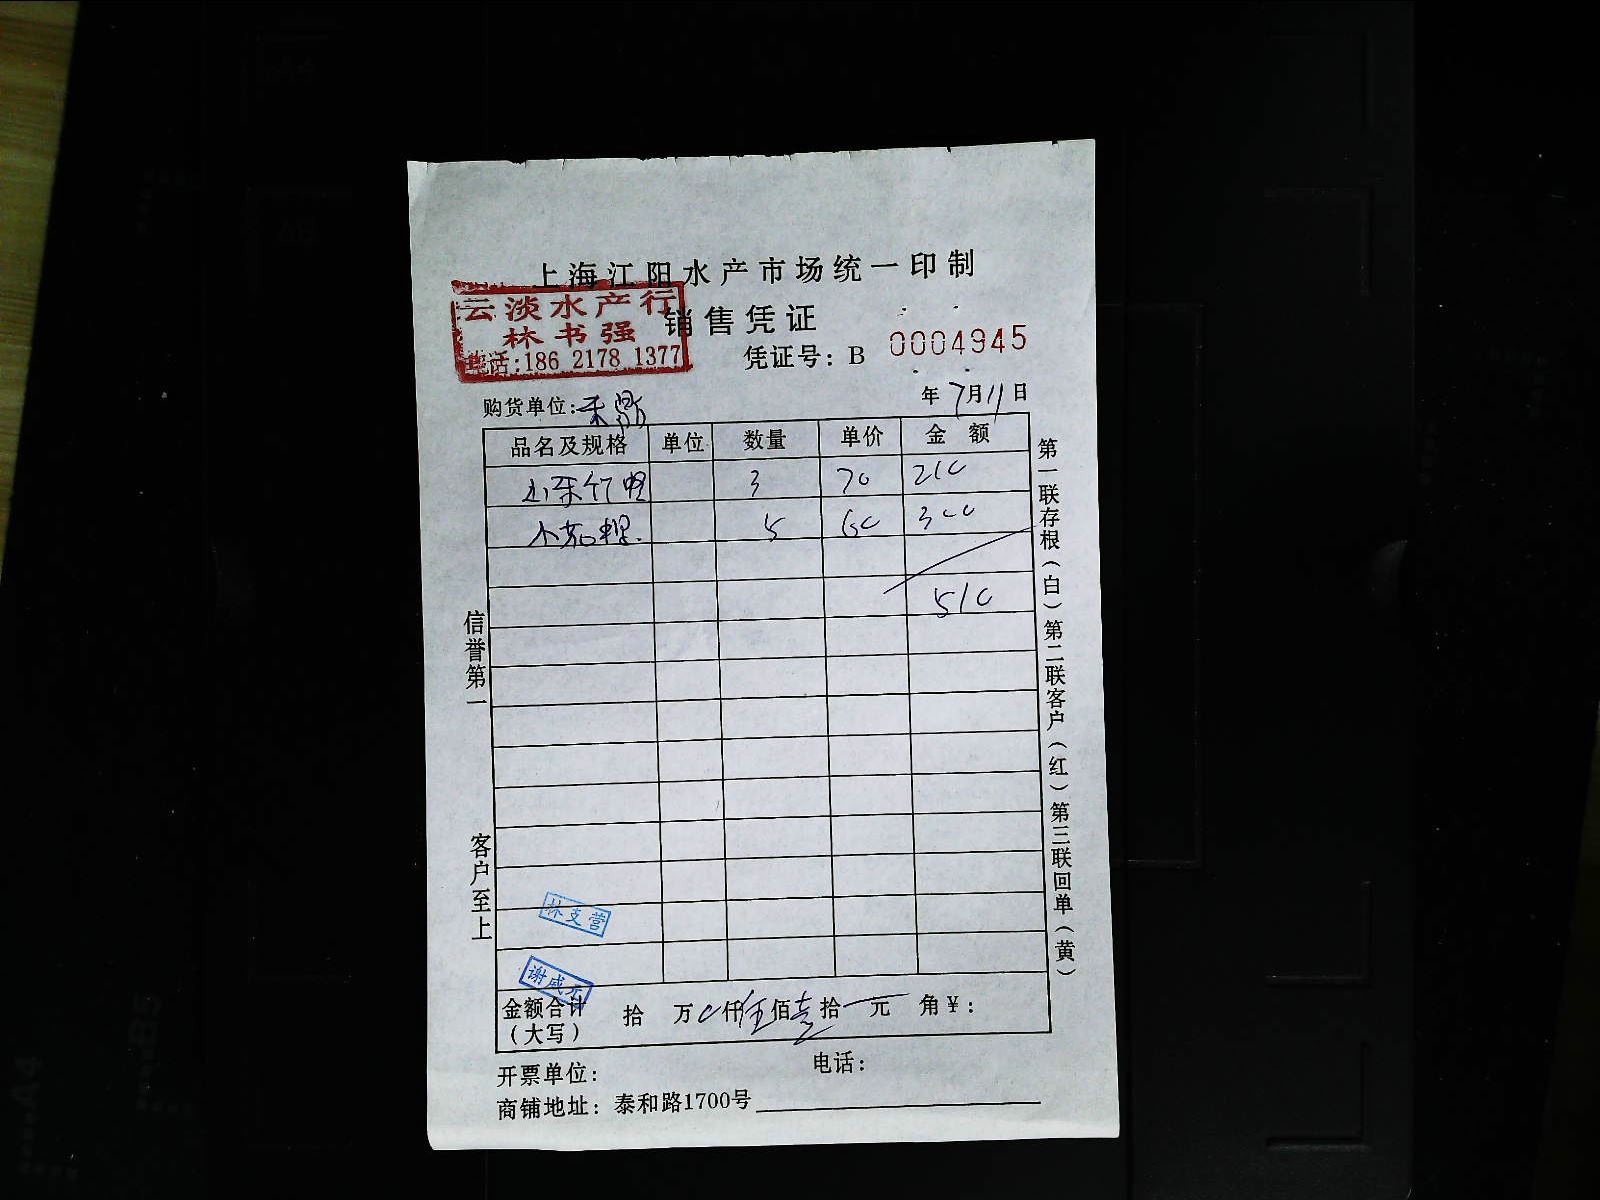 上海江阳水产市场统一印制
云淡水产行
林书强
电话:186 2178 1377
销售凭证
凭证号：B 0004945
购货单位:禾
年7月11日
品名及规格 单位 数量 单价 金额
山东竹蛏 3 70 210
小 5 60 300
510
信誉第一
客户至上
第一联存根(白)第二联客户(红)第三联回单(黄)
林支营
谢咸元
金额合计 拾 万0仟伍佰壹拾 元 角¥：
(大写)
开票单位： 电话：
商铺地址：泰和路1700号